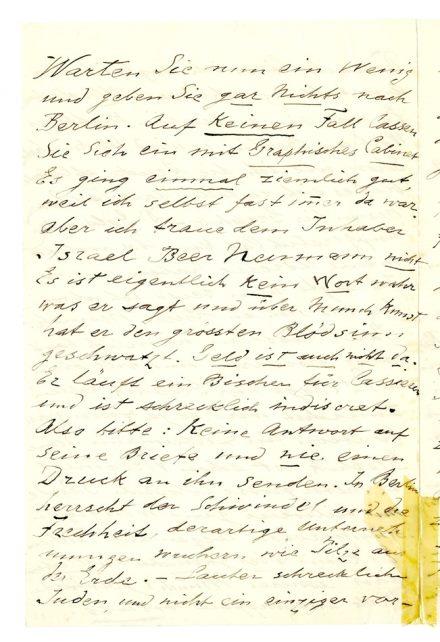 Warten Sie nun ein Wenig
und geben Sie gar Nichts nach
Berlin. Auf Keinen Fall lassen
Sie Sich ein mit Graphisches Cabinet
Es ging einmal ziemlich gut,
weil ich selbst fast imer da war
aber ich traue dem Inhaber
Israel Beer Neumann nicht
Es ist eigentlich Kein Wort wahr
was er sagt und über Munch Kunst
hat er den grössten Blödsinn
geschwatzt. Geld ist auch nicht da.
Er läuft ein Bischen für Cassirer
und ist schrecklich indiscret.
Also bitte: Keine Antwort auf
seine Briefe und nie einen
Druck an ihn senden. In Berlin
herrscht der Schwindel und die
Frechheit, derartige Unterneh
mungen wuchern wie Pilze aus
der Erde. – Lauter schreckliche
Juden und nicht ein einziger vor–